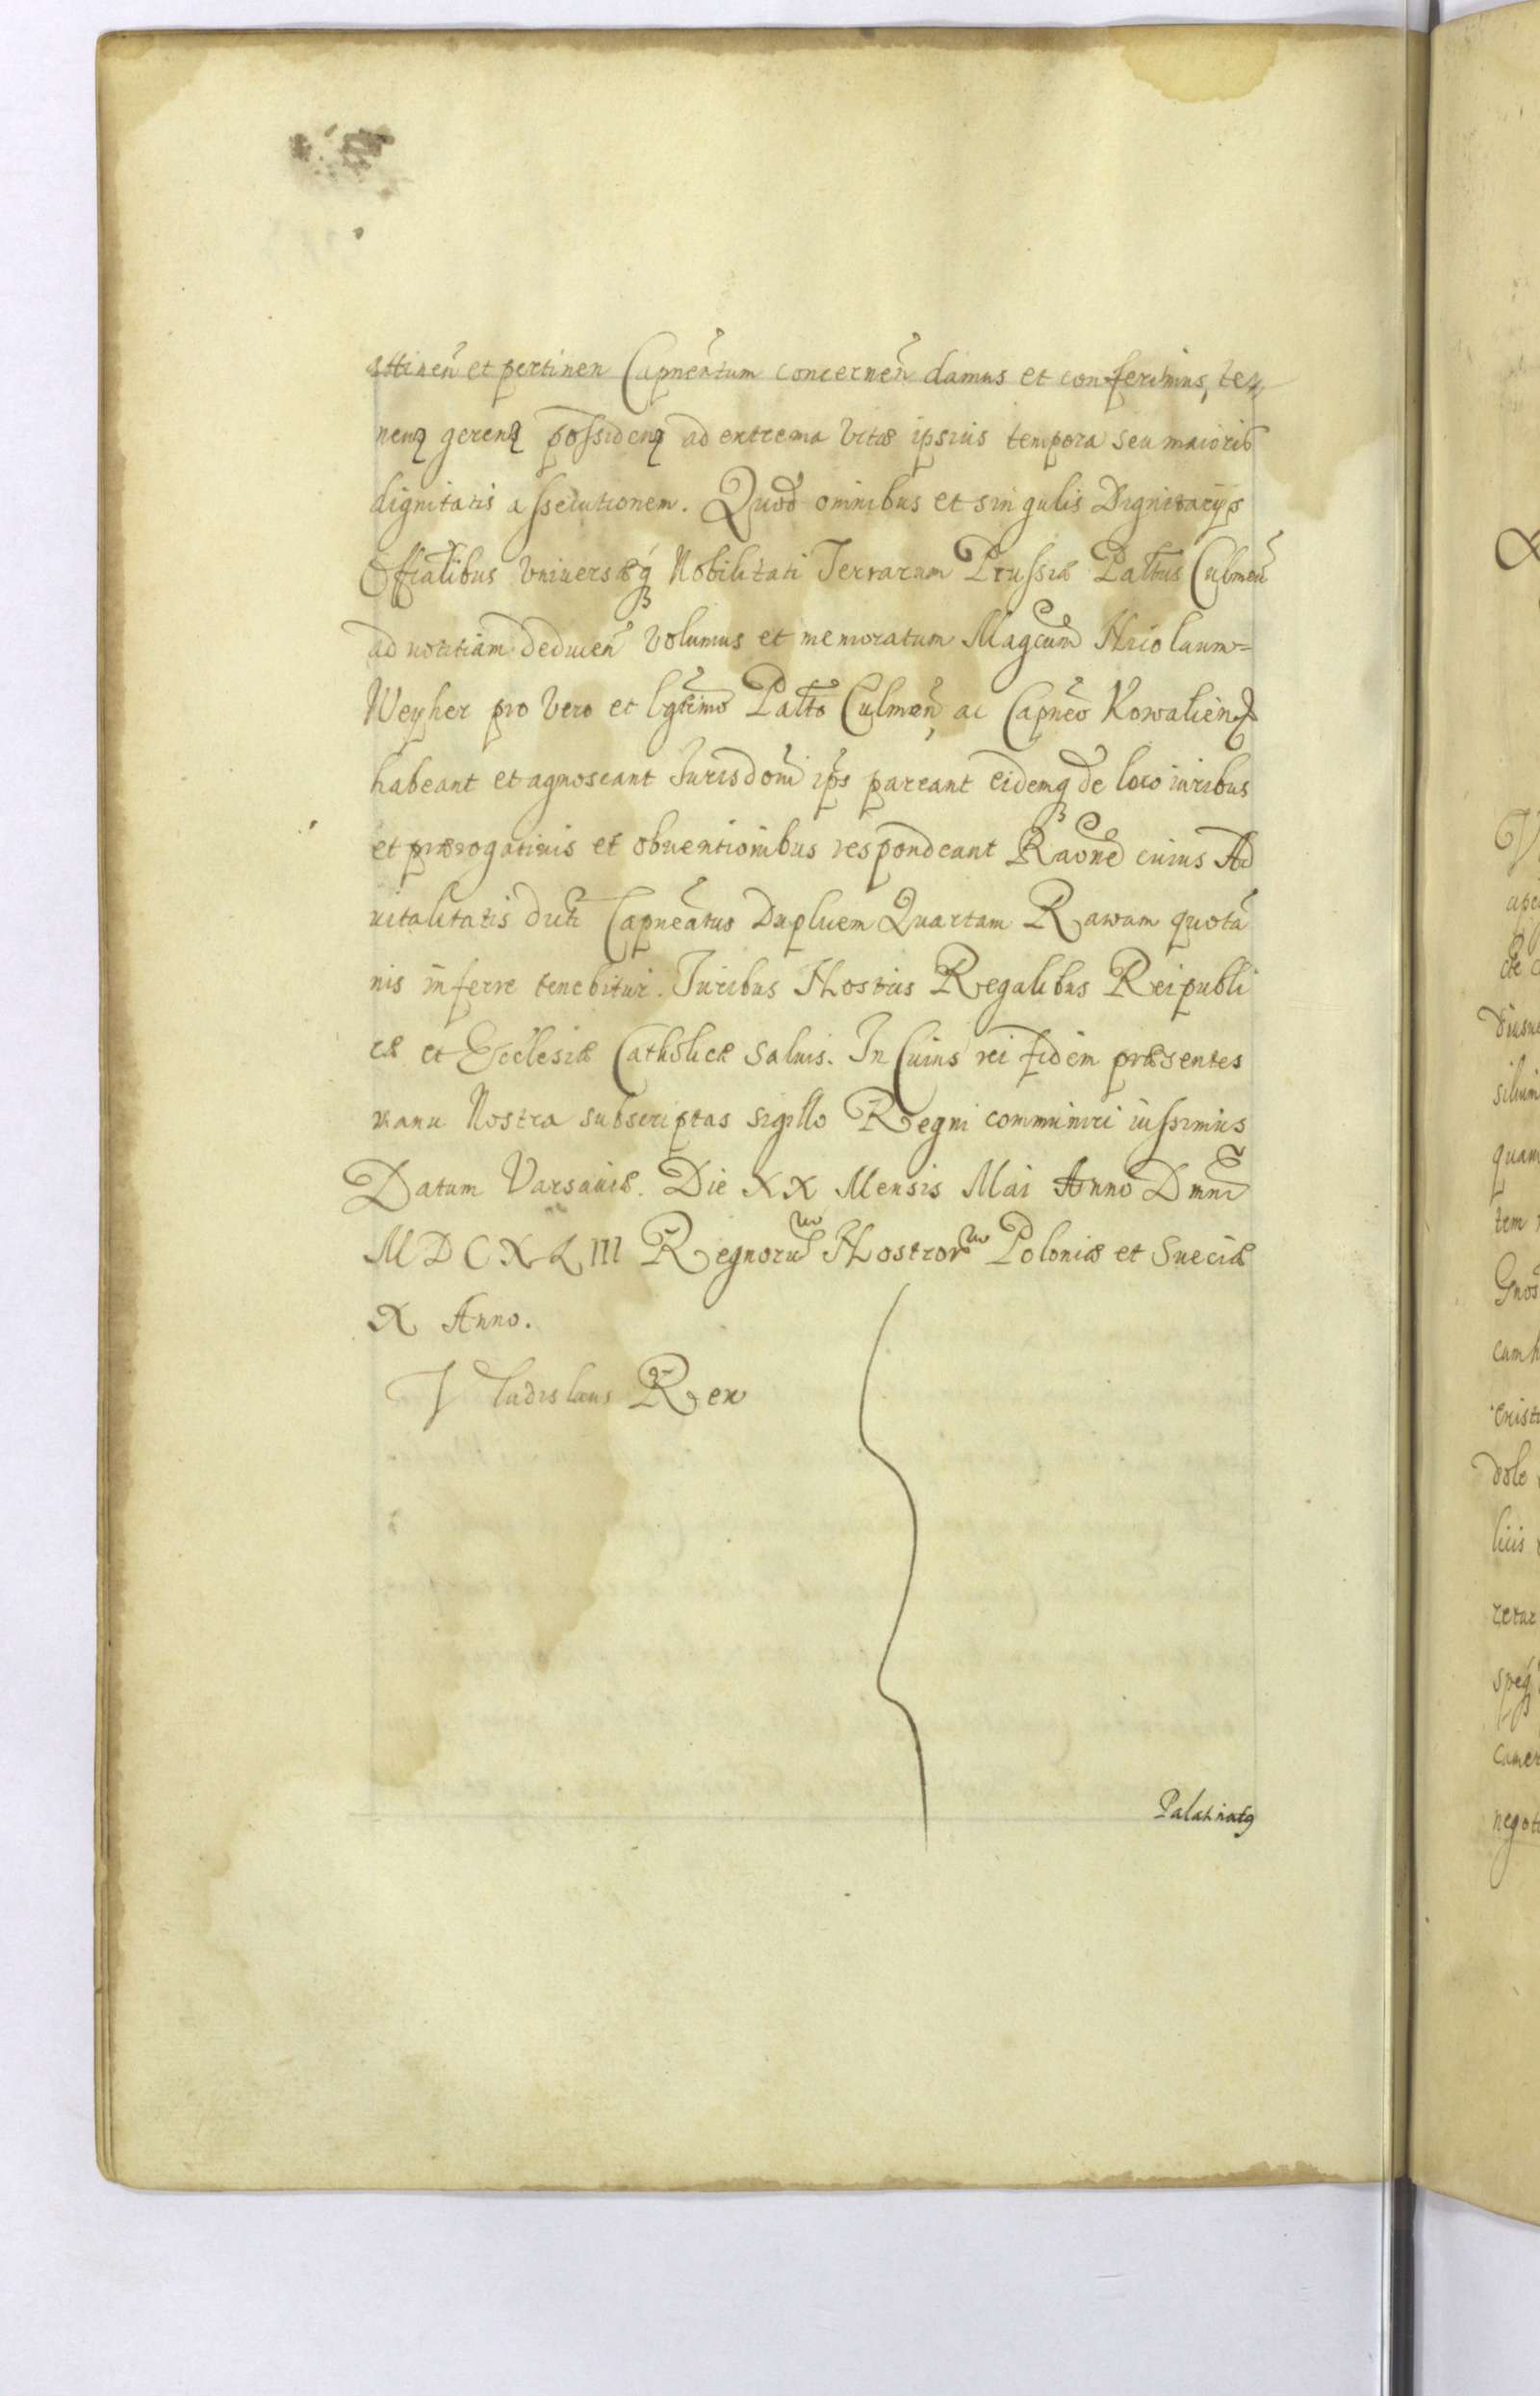 attinen et pertinen Capneatum concernen damus et conferimus, ten
nenq gerenq possidenq ad extrema vitæ ipsius tempora seu maioris
dignitatis assecutionem. Quod omnibus et singulis Dignitarijs
Offialibus Vniuersæq Nobilitati Terrarum Prussiæ Pallus Culmen
ad notitiam deducen volumus et memoratum Magcum Nicolaum=
Weyher pro Vero et lgtimo Palto Culmen, ac Capneo Kowalien
habeant et agnoscant Jurisdoni ips pareant eidemq de loco iuribus
et prærogatiuis et obuentionibus respondeant Raone cuius Ad
uitalitatis dicti Capneatus Duplicem Quartam Rawam quota
nis inferre tenebitur. Juribus Nostris Regalibus Reipubli
cæ et Ecclesiæ Catholicæ saluis. In Cuius rei fidem præsentes
manu Nostra subscriptas sigillo Regni communiri iussimus
Datum Varsauiæ. Die XX Mensis Mai Anno Dmni
MDCXLIII Regnoru Nostror Poloniæ et Sueciæ
X Anno.
Vladislaus Rex
Palatinatq